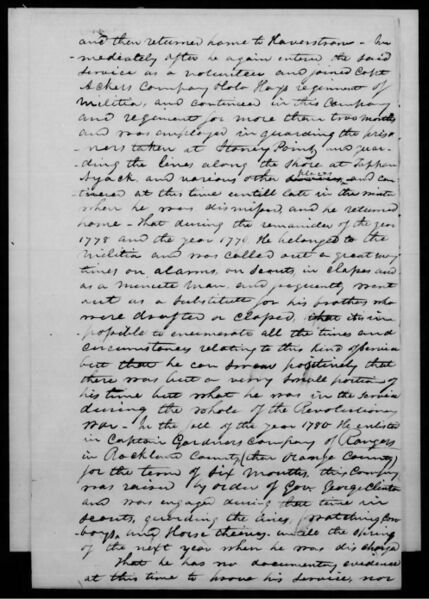 and then returned home to Haverstraw - Im
mediately after he again entered the said
service as a volunteer and joined Capt
Ackers Company Colo Hays regiment of
Militia, and continued in this Company
and regiment for more than two months
and was employed in guarding the priso
ners taken at Stoney Point, and guar-
ding the lines along the shore at Tappan
Nyack, and various other places and con
tinered at this time untill late in the
when he was dismissed, and he returned
home - That during the remainder of the year
1778 and the year 1779 He belonged to the
Militia and was called out a great many
times on alarms, on scouts, in classes and
as a Minute Man, and frequently went
out as a Substitute for his brothers who
were drafted or classed, that it is im
possible to enumerate all the times and
circumstances relating to this kind of Service
but that he can swear positively that
there was but a very small portion of
his time but what he was in the Service
during the whole of the Revolutionary
War - In the fall of the year 1780 He enlisted
in Captain Gardners Company of Rangers
in Rockland County (then Orange County)
for the term of six months, this Company
was raised by order of Gov. George Clinton
and was engaged during that time in
scouts, guarding the lines, watching Cow
boys, and Horse theives, untill the Spring
of the next year when he was discharged
That he has no documentary evidence
at this time to prove his service, nor